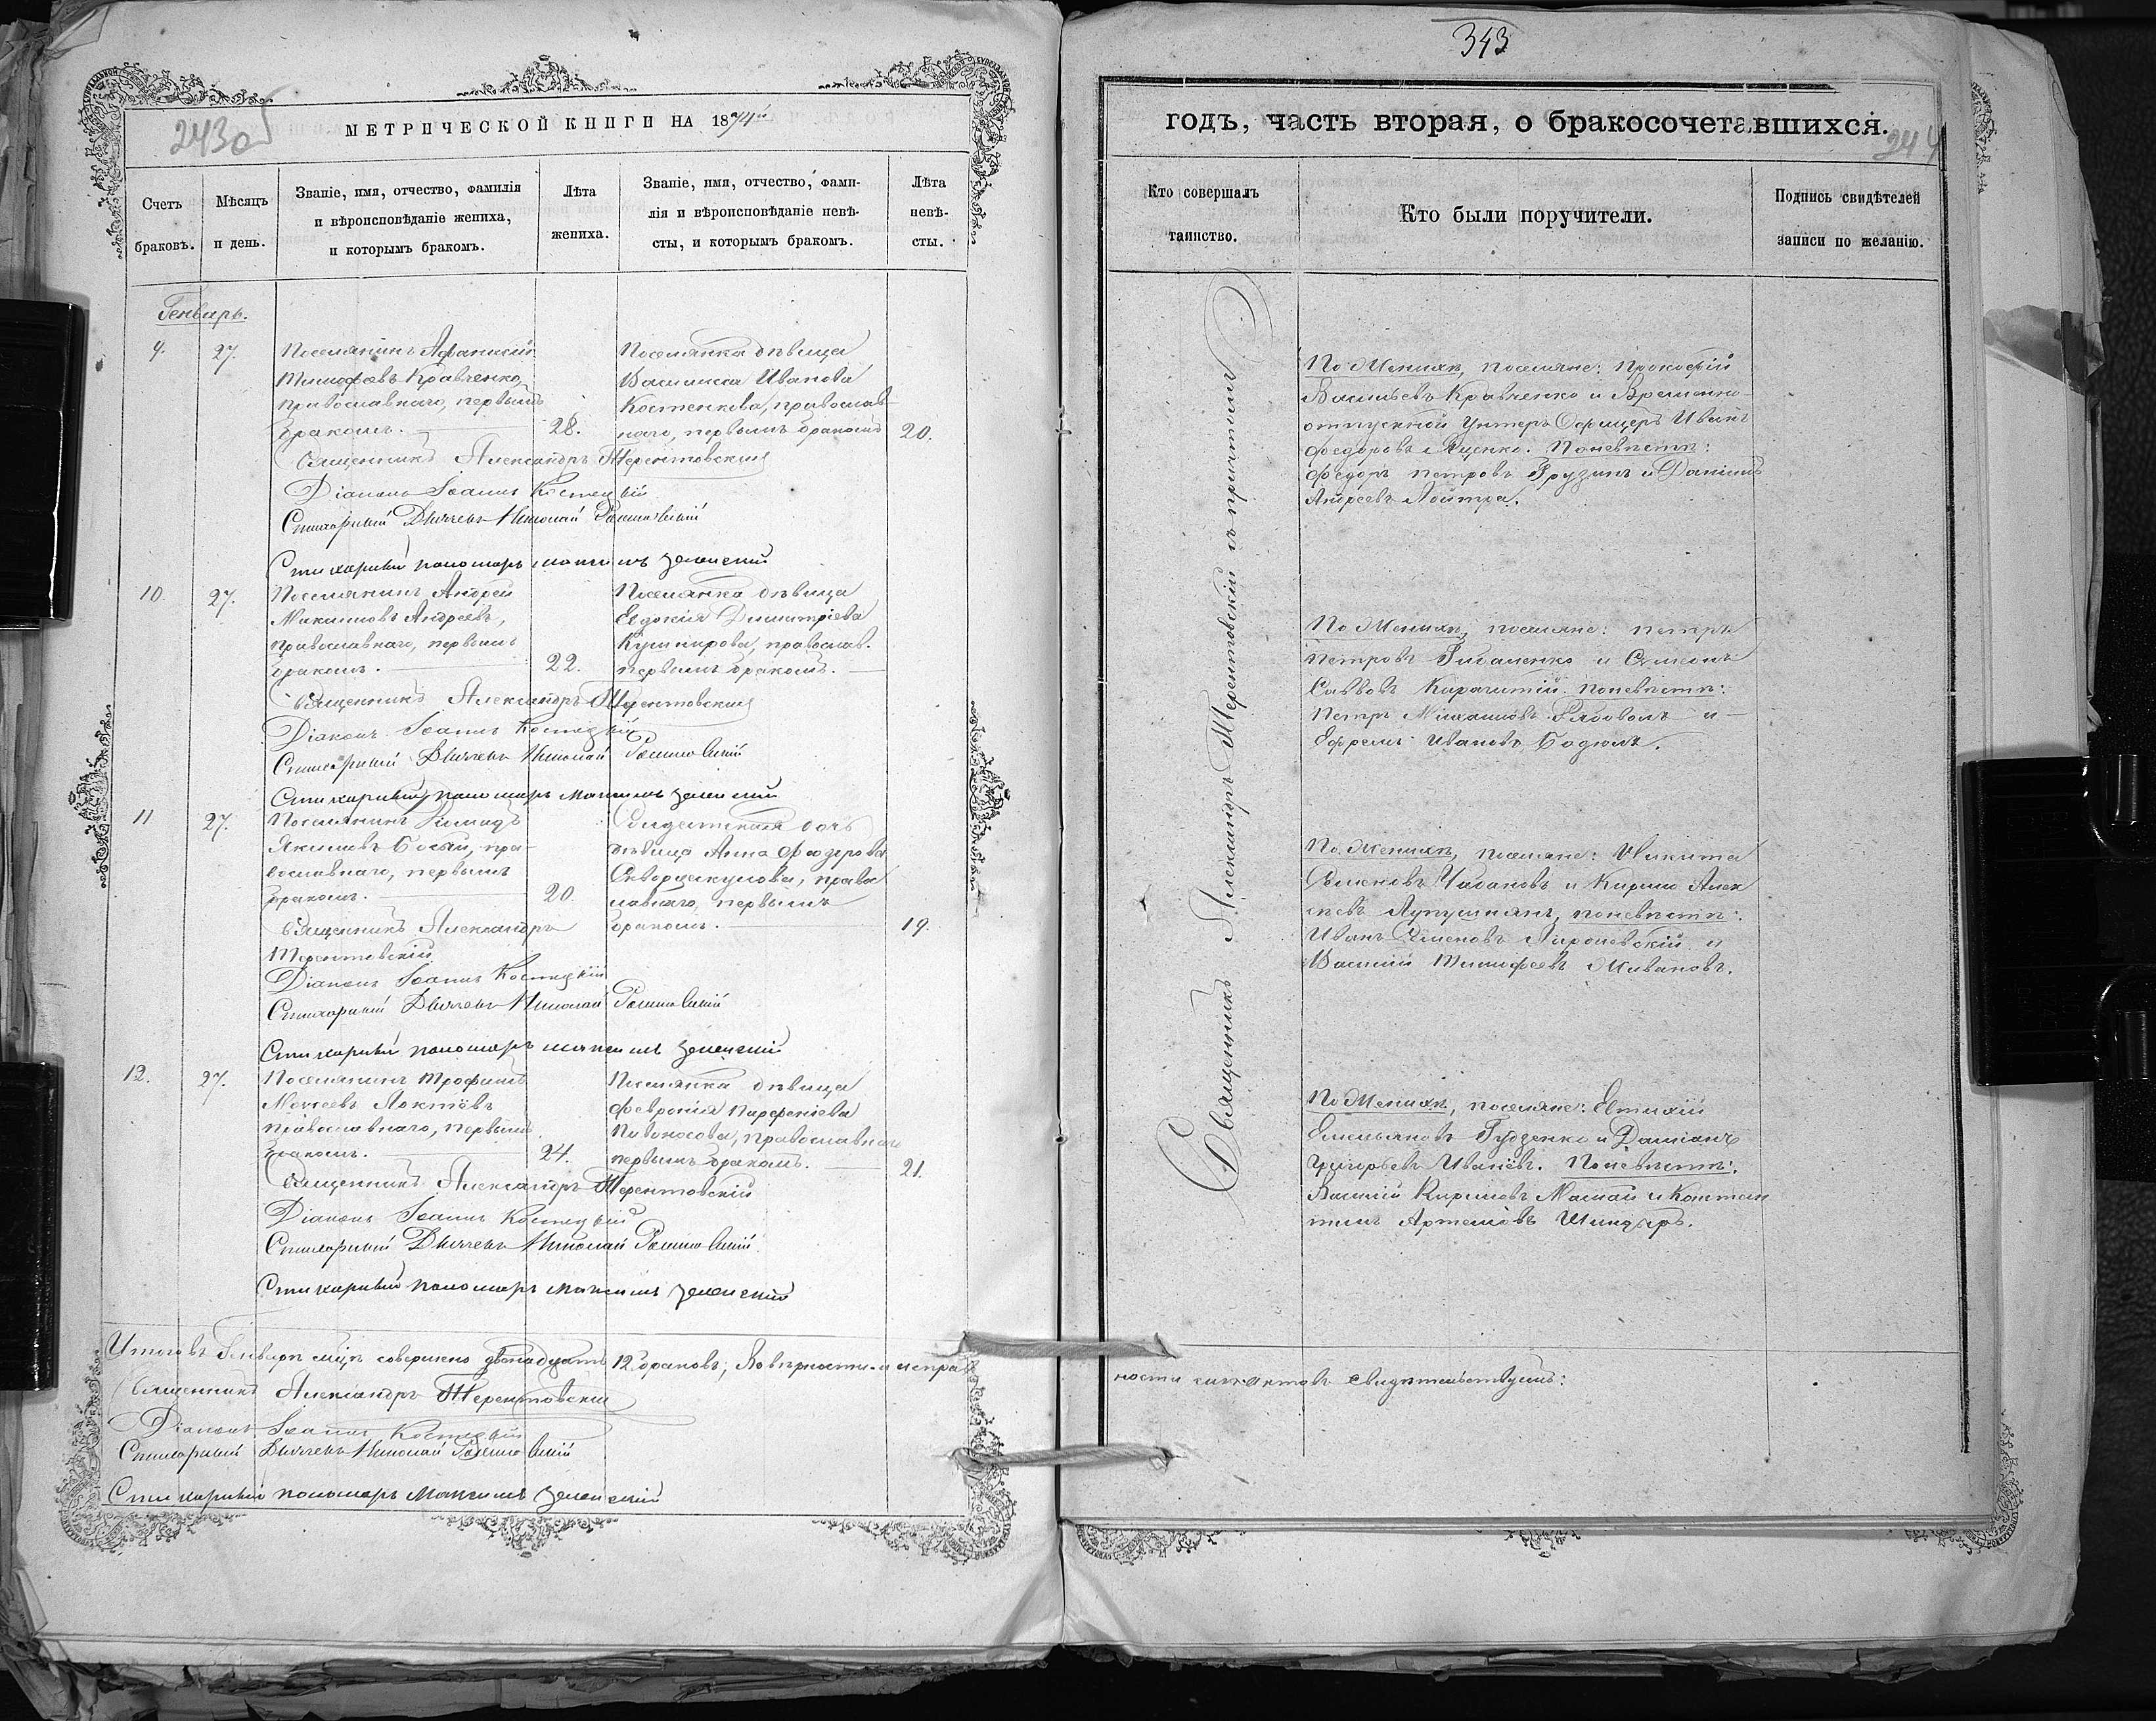 243об
МЕТРИЧЕСКОЙ КНИГИ НА 1874й
Счетъ браковъ.
Мѣсяцъ и день.
Званіе, имя, отчество, фамилія и вѣроисповѣданіе жениха, и которымъ бракомъ.
Лѣта жениха.
Званіе, имя, отчество, фамилія и вѣроисповѣданіе невѣсты, и которымъ бракомъ.
Лѣта невѣсты.
Генварь.
9. 27.
Поселянинъ Афанасій
Тимофеевъ Кравченко,
православнаго, первымъ
бракомъ. 28.
Поселянка дѣвица
Василиса Иванова
Костенкова, православ-
наго, первымъ бракомъ 20.
Священникъ Александръ Терентовскій
Діаконъ Іоаннъ Костецкій
Стихарный Дьячекъ Николай
Стихарный пономарь Максимъ Зеленскій
10. 27.
Поселянинъ Андрей
Максимовъ Андреевъ,
православнаго, первымъ
бракомъ. 22.
Поселянка дѣвица
Евдокія Димитріева
Кушнирова, православ.
первымъ бракомъ.
Священникъ Александръ Терентовскій
Діаконъ Іоаннъ Костецкій
Стихарный Дьячекъ Николай
Стихарный пономарь Максимъ Зеленскій
11 27.
Поселянинъ
Якимовъ Босый, пра-
вославнаго, первымъ
бракомъ. 20.
Солдатская дочь
дѣвица Анна Федорова
Скворцикулова, право
славнаго, первымъ
бракомъ. 19.
Священникъ Александръ
Терентовскій
Діаконъ Іоаннъ Костецкій
Стихарный Дьячекъ Николай
Стихарный пономарь Максимъ Зеленскій
12. 27.
Поселянинъ Трофимъ
Моисеевъ Локтёвъ
православнаго, первымъ
бракомъ. 24.
Поселянка дѣвица
Февронія Парфеніева
Пивокосова, православнаго
первымъ бракомъ. 21.
Священникъ Александръ Терентовскій
Діаконъ Іоаннъ Костецкій
Стихарный Дьячекъ Николай
Стихарный пономарь Максимъ Зеленскій
Итого въ Генварѣ мцѣ совершено двенадцать 12 браковъ; въ вѣрности и исправ
Священникъ Александръ Терентовскій
Діаконъ Іоаннъ Костецкій
Стихарный Дьячекъ Николай
Стихарный пономарь Максимъ Зеленскій
343
годъ, часть вторая, о бракосочетавшихся.
244
Кто совершалъ таинство.
Кто были поручители.
Подпись свидѣтелей записи по желанію.
Священникъ Александръ Терентовскій съ причтомъ
По Женихѣ, поселяне: Прокофій
Васильевъ Кравченко и Временно-
отпускной Унтеръ Офицеръ Иванъ
Федоровъ Яценко. По невѣстѣ:
Федоръ Петровъ Грузинъ и Даніилъ
Андреевъ Лойтра.
По Женихѣ, поселяне: Петръ
Петровъ и Симеонъ
Савовъ По невѣстѣ:
Петръ Рябоволъ и
Ефремъ Ивановъ Бодюлъ.
По Женихѣ, поселяне: Никита
Семеновъ Чабановъ и Кирилъ Алек
сѣевъ Лупушнянъ, по невѣстѣ:
Иванъ Семеновъ и
Василій Тимофеевъ Живановъ.
По Женихѣ, поселяне: Евтихій
Емельяновъ Гудзенко и Даміанъ
Григорьевъ Ивановъ. По невѣстѣ:
Василій Кириловъ и Констан
тинъ Артемовъ Шиндяръ.
ности сихъ актовъ свидѣтельствуемъ: